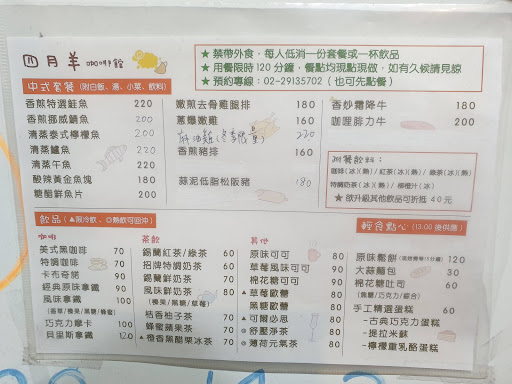 四月羊 咖啡館
★ 禁帶外食，每人低消一份套餐或一杯飲品
★ 用餐限時120分鐘，餐點均現點現做，如有久候請見諒
★ 預約專線：02-29135702（也可先點餐）
中式套餐（附白飯、湯、小菜、飲料）
香煎特選鮭魚 220
香煎挪威鯖魚 200
清蒸泰式檸檬魚 200
清蒸鱸魚 220
清蒸午魚 220
酸辣黃金魚塊 180
糖醋鮮魚片 200
嫩煎去骨雞腿排 180
蔥爆嫩雞 160
麻油雞(冬季限量) 220
香煎豬排 160
蒜泥低脂松阪豬 180
香炒霜降牛 180
咖哩腓力牛 200
附餐飲料：
咖啡(冰)(熱)/紅茶(冰)(熱)/綠茶(冰)(熱)
特調奶茶(冰)(熱)/檸檬汁(冰)
★ 欲升級其他飲品可折抵 40 元
飲品（▲限冷飲、◎熱飲可回沖）
咖啡
美式黑咖啡 70
特調咖啡 70
卡布奇諾 90
經典原味拿鐵 90
風味拿鐵 100
(香草/榛果/黑糖/蜂蜜)
巧克力摩卡 100
貝里斯拿鐵 120
茶飲
錫蘭紅茶/綠茶 60
招牌特調奶茶 60
錫蘭鮮奶茶 70
風味鮮奶茶 80
(榛果/黑糖/草莓)
桔香柚子茶 80
蜂蜜蘋果茶 90
▲橙香黑醋栗冰茶 90
其他
原味可可 80
草莓風味可可 90
棉花糖可可 90
▲草莓歐蕾 80
黑糖歐蕾 80
▲可爾必思 80
◎舒壓淨茶 80
◎薄荷元氣茶 80
輕食點心（13:00 後供應）
原味鬆餅 120
大蒜麵包 30
棉花糖吐司 60
(焦糖/巧克力/綜合)
手工精選蛋糕 60
-古典巧克力蛋糕
-提拉米蘇
-檸檬重乳酪蛋糕